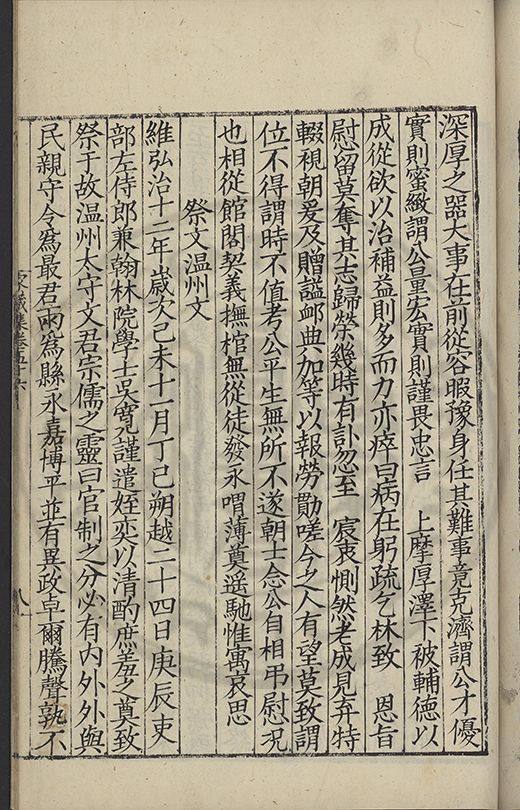 深厚之器大事在前從容暇豫身任其難事竟克濟謂公才優
實則蜜緻謂公量宏實則謹畏忠言　上摩厚澤下被輔德以
成從欲以治補益則多而力亦瘁曰病在躬疏乞林致　恩旨
慰留莫奪其志歸榮幾時有訃忽至　宸衷惻然老成見弃特
輟視朝爰及贈謚邮典加等以報勞勩嗟今之人有望莫致謂
位不得謂時不值考公平生無所不遂朝士念公自相弔慰况
也相從館閣契義撫棺無從徒發永喟薄奠遥馳惟寓哀思
祭文温州文
維弘治十二年歲次己未十一月丁巳朔越二十四日庚辰吏
部左侍郎兼翰林院學士吳寬謹遣姪奕以清酌庶羞之奠致
祭于故温州太守文君宗儒之靈曰官制之分必有内外外與
民親守令爲最君兩爲縣永嘉博平並有異政卓爾騰聲孰不
家藏集卷五十六
八